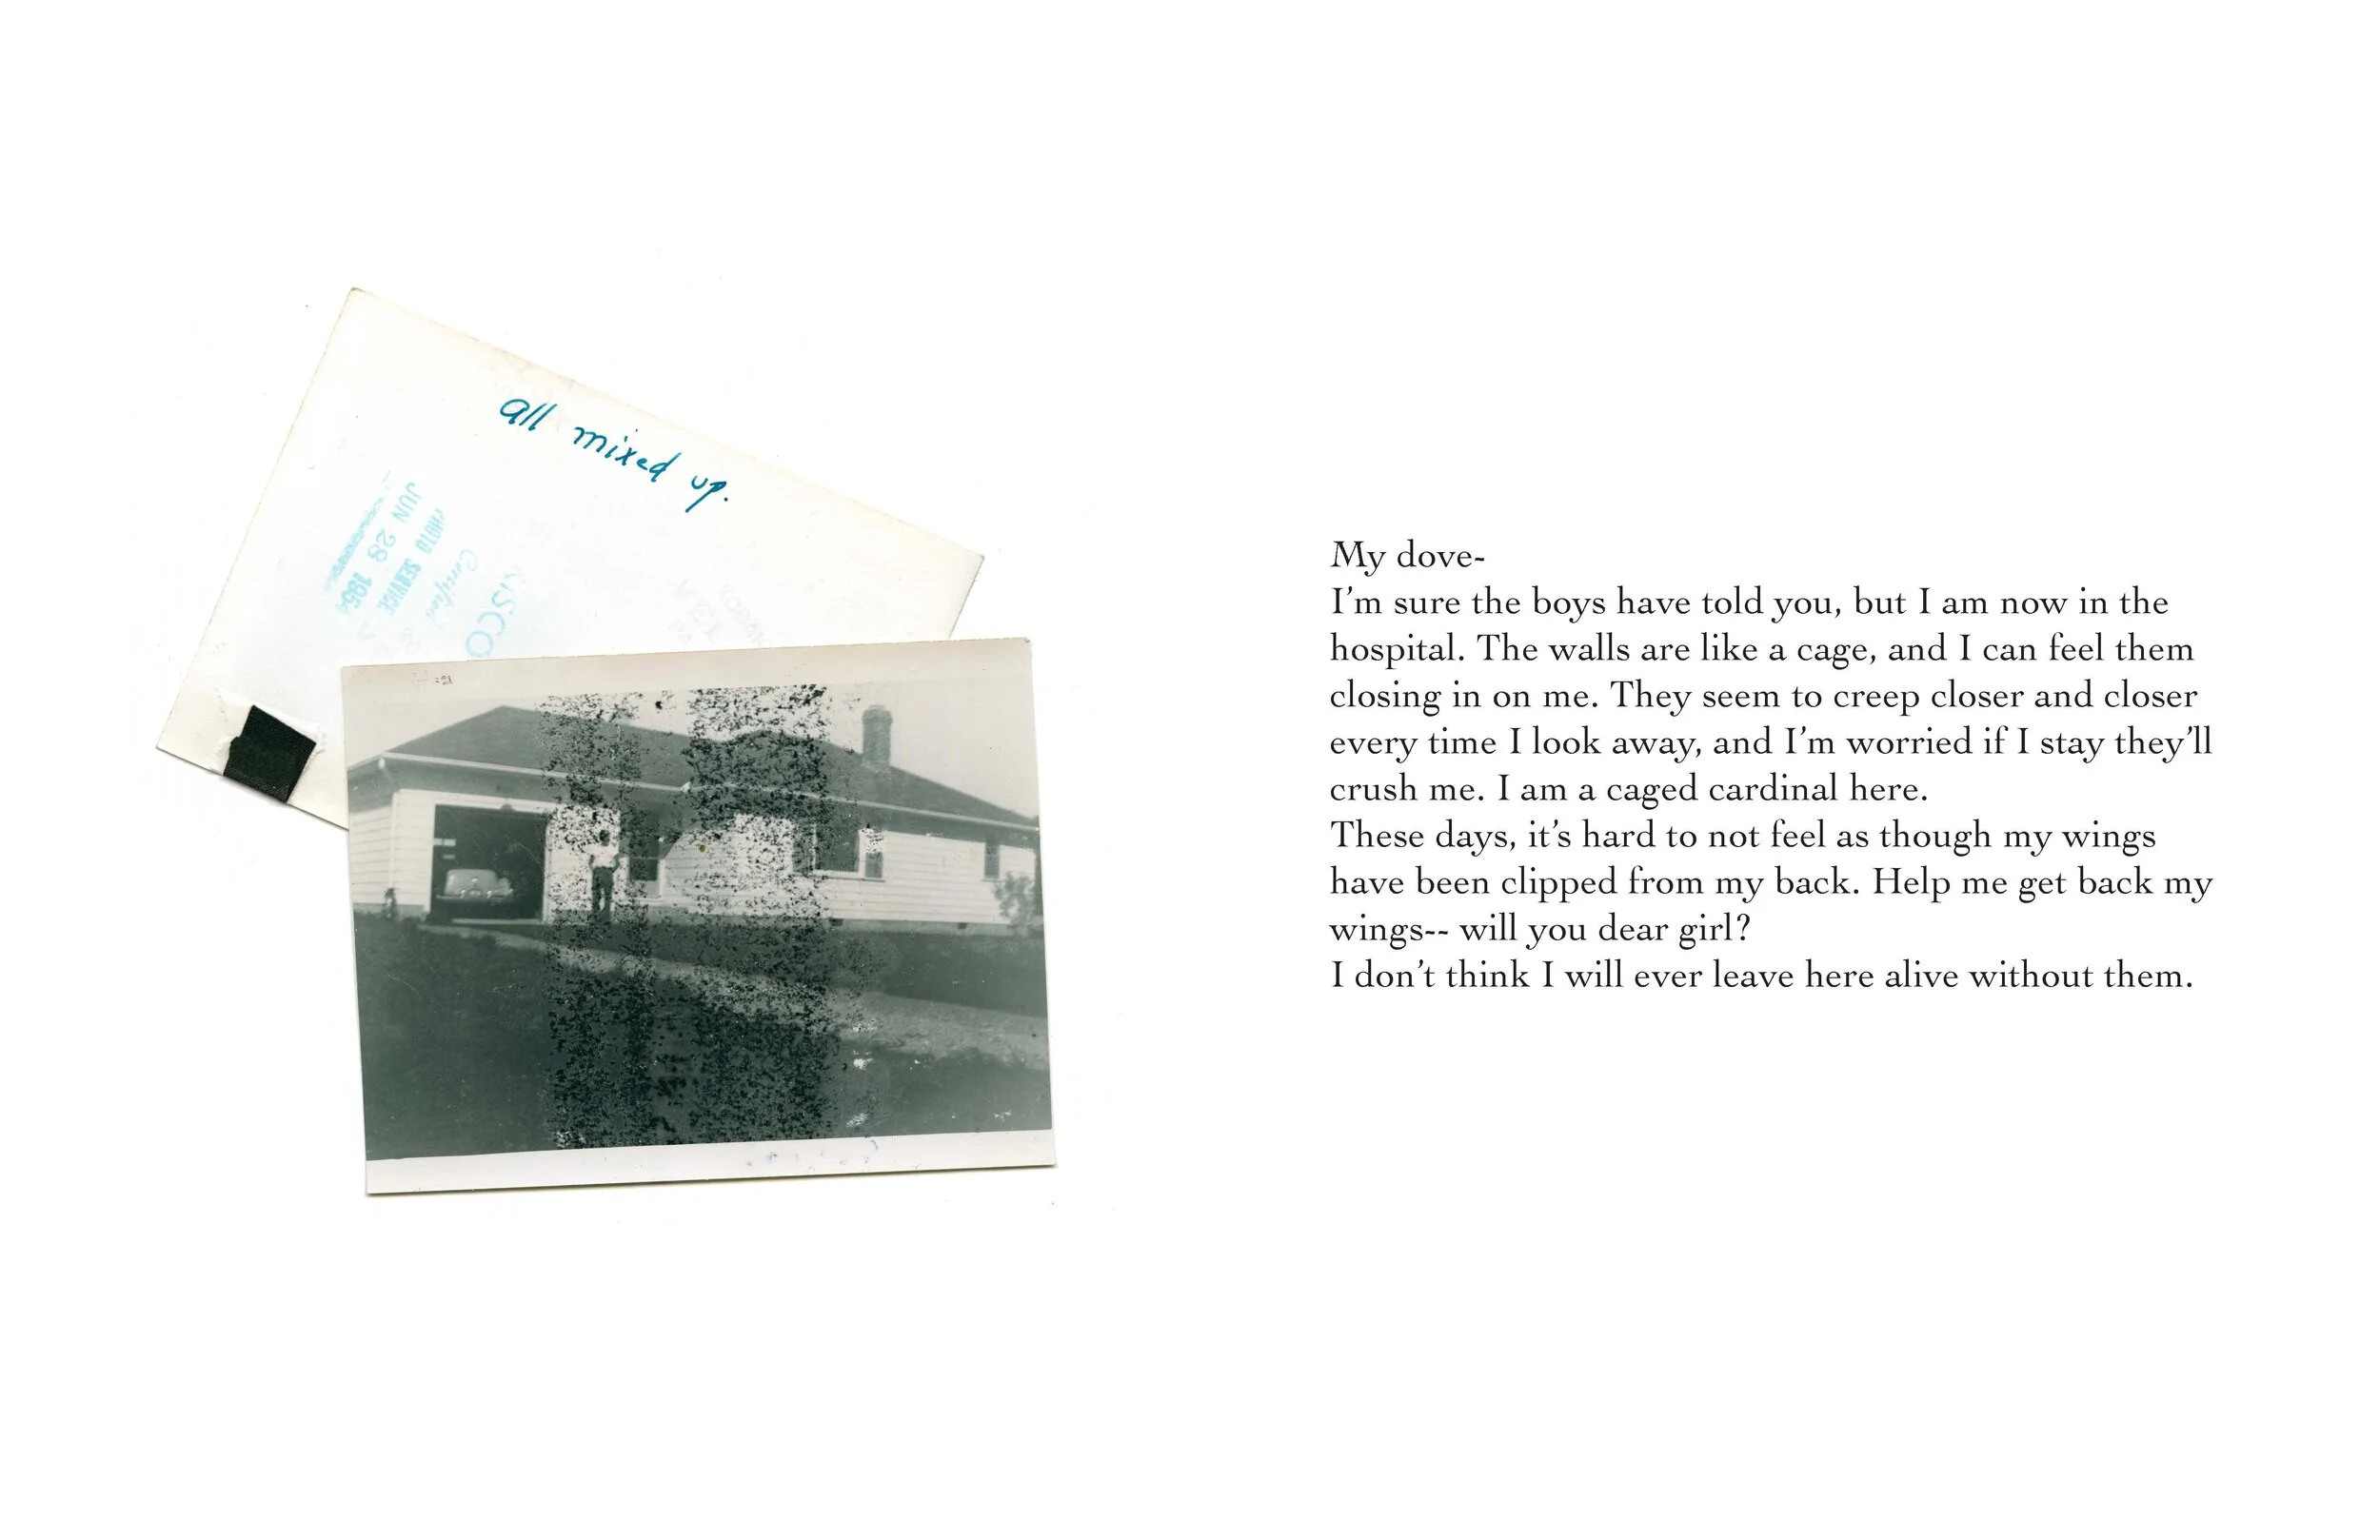 all mixed up.
PHOTO SERVICE
JUN 28 195
My dove-
I’m sure the boys have told you, but I am now in the
hospital. The walls are like a cage, and I can feel them
closing in on me. They seem to creep closer and closer
every time I look away, and I’m worried if I stay they’ll
crush me. I am a caged cardinal here.
These days, it’s hard to not feel as though my wings
have been clipped from my back. Help me get back my
wings-- will you dear girl?
I don’t think I will ever leave here alive without them.